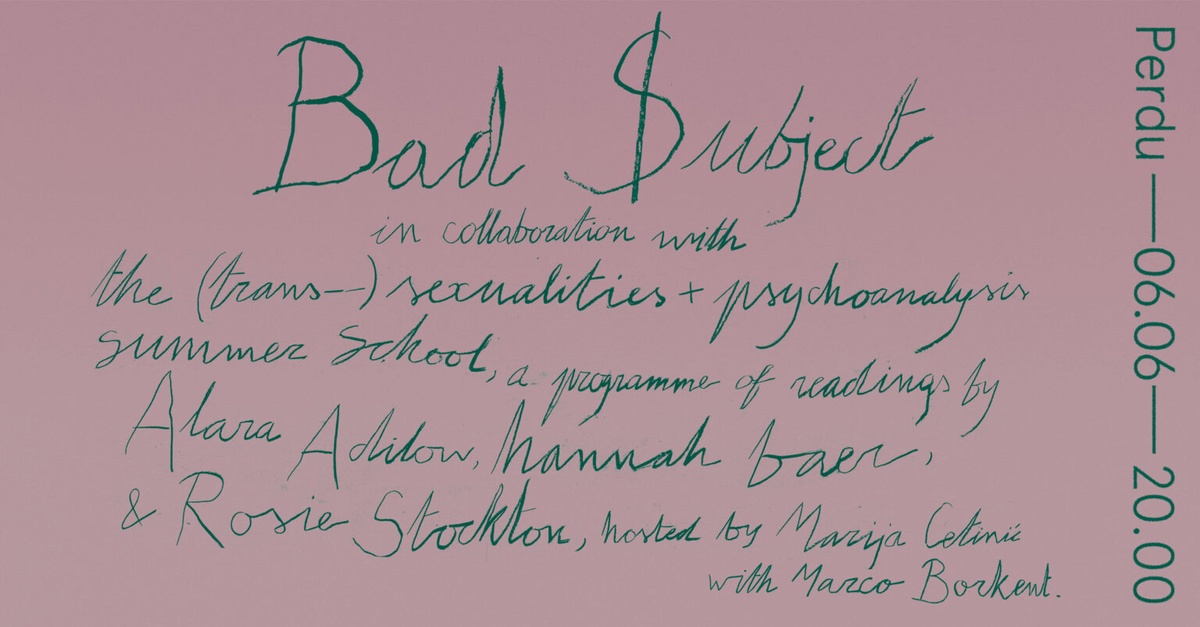 Bad $ubject
in collaboration with
the (trans-) sexualities + psychoanalysis
summer School, a programme of readings by
Alara Adilow, hannah baer,
& Rosie Stockton, hosted by Marija Cetinić
with Marco Borkent.
Perdu —— 06.06 —— 20.00